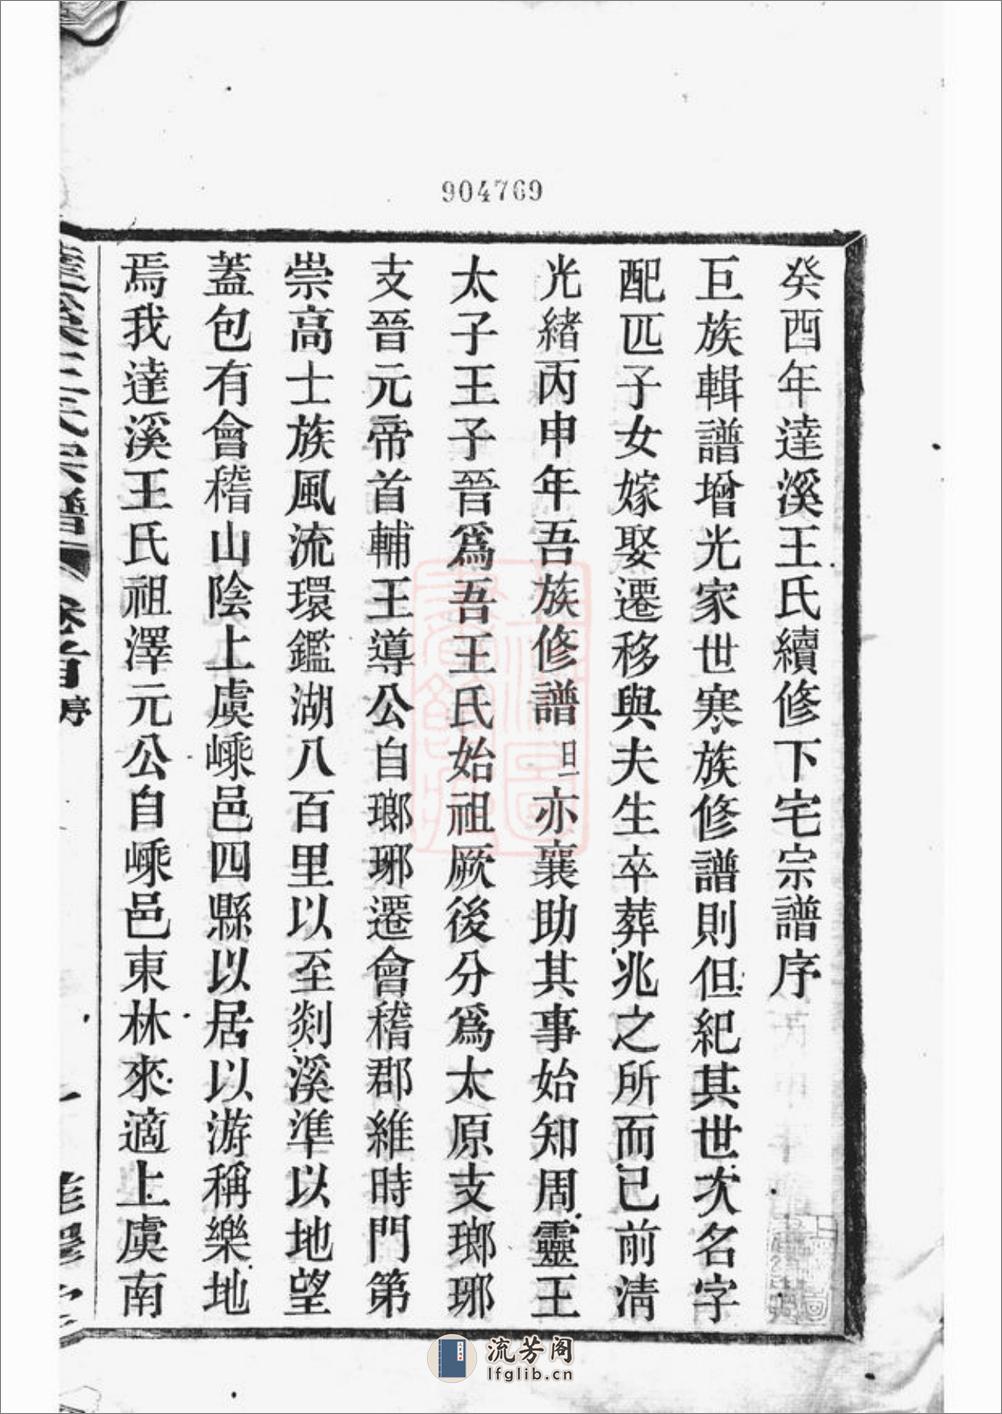 904769
癸酉年達溪王氏續修下宅宗譜序
巨族輯譜增光家世寒族修譜則但紀其世次名字
配匹子女嫁娶遷移與夫生卒葬兆之所而已前清
光緒丙申年吾族修譜亦襄助其事始知周靈王
太子王子晉爲吾王氏始祖厥後分爲太原支瑯琊
支晉元帝首輔王導公自瑯琊遷會稽郡維時門第
崇高士族風流環鑑湖八百里以至剡溪準以地望
蓋包有會稽山陰上虞嵊邑四縣以居以游稱樂地
焉我達溪王氏祖澤元公自嵊邑東林來適上虞南
達溪王氏宗譜 卷首 序 一
流芳阁
lfglib.cn